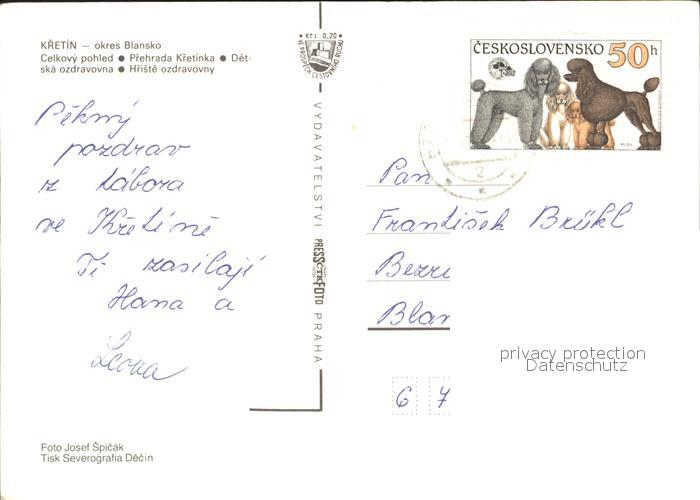 KŘETÍN — okres Blansko
Celkový pohled ● Přehrada Křetínka ● Dět-
ská ozdravovna ● Hřiště ozdravovny
Pěkný
pozdrav
z tábora
ve Křetíně
Ti zasílají
Hana a
Leona
Foto Josef Špičák
Tisk Severografia Děčín
Kčs 0,20
VE PROSPĚCH CESTOVNÍHO RUCHU
VYDAVATELSTVÍ PRESSFOTO PRAHA
ČESKOSLOVENSKO 50h
PUDL
2
Pan
František Brükl
Bezru
Blan
6 7
privacy protection
Datenschutz